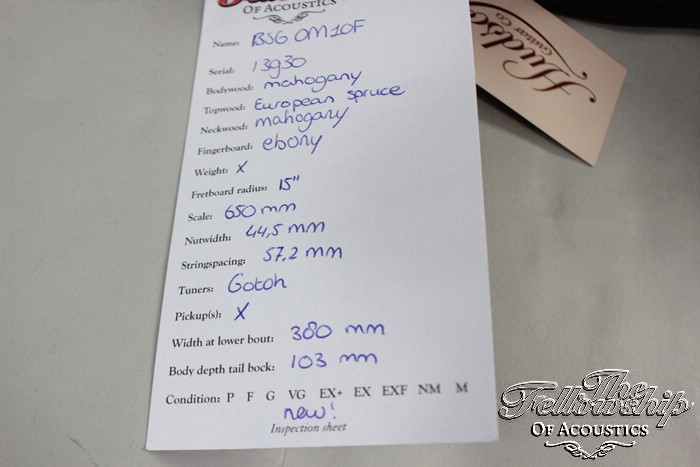 OF ACOUSTICS
Name: BSG OM10F
Serial: 13930
Bodywood: mahogany
Topwood: European spruce
Neckwood: mahogany
Fingerboard: ebony
Weight: X
Fretboard radius: 15"
Scale: 650 mm
Nutwidth: 44,5 mm
Stringspacing: 57,2 mm
Tuners: Gotoh
Pickup(s): X
Width at lower bout: 380 mm
Body depth tail bock: 103 mm
Condition: P F G VG EX+ EX EXF NM M
new!
Inspection sheet
Hudson
Guitar Co
The
Fellowship
OF ACOUSTICS